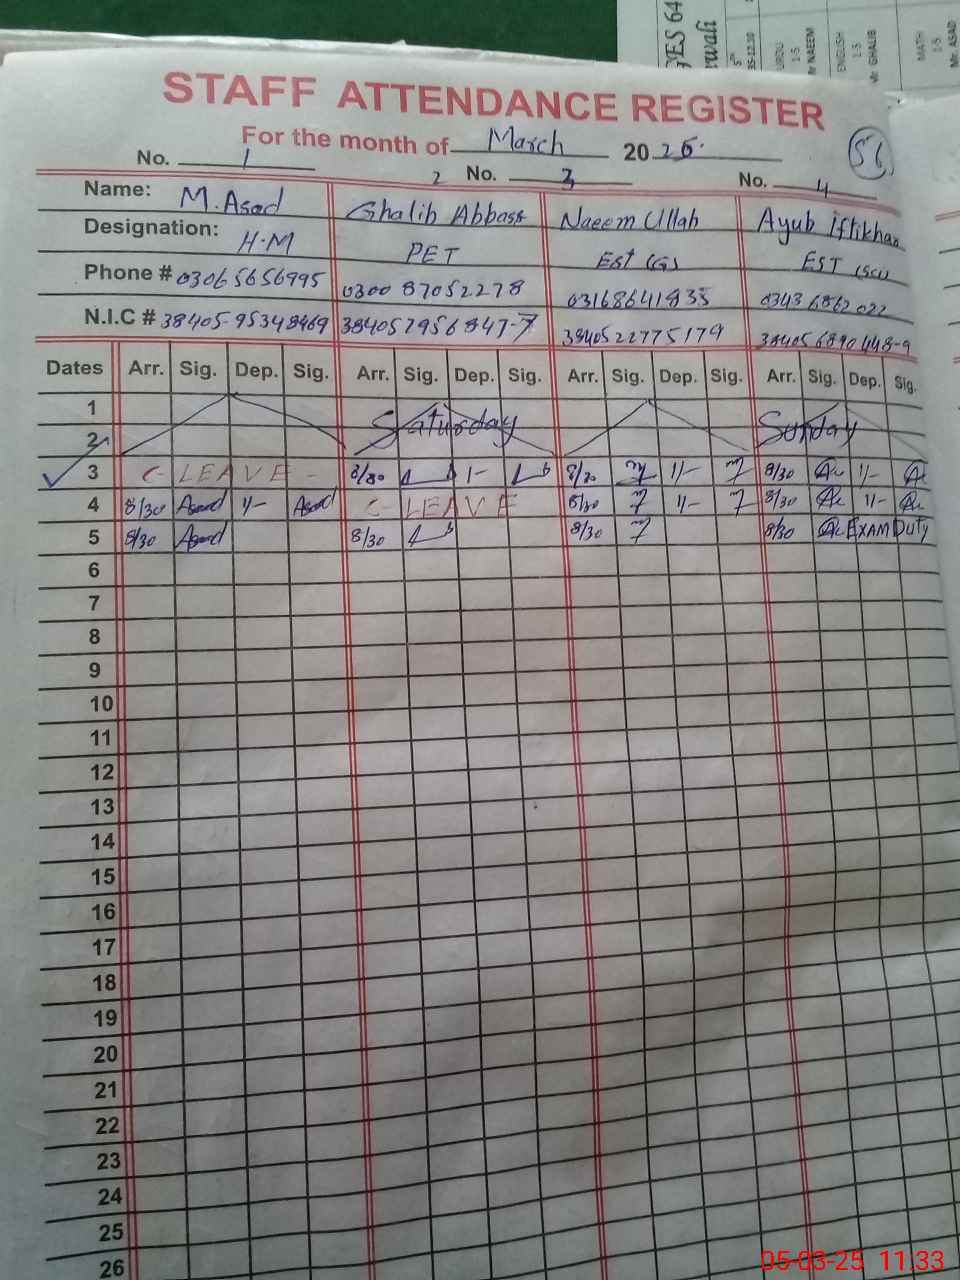 GES 64
5th
URDU
1-5
Mr NAEEM
ENGLISH
1-5
Mr. GHALIB
MATH
1-5
Mr. ASAD
STAFF ATTENDANCE REGISTER
For the month of March 2025
56
No. 1 2 No. 3 No. 4
Name: M. Asad Ghalib Abbass Naeem Ullah Ayub Iftikhar
Designation: H.M PET Est (G) EST (SCI)
Phone # 03065656995 0300 87052278 03168641835 0343 6862022
N.I.C # 38405-95348469 384057956847-7 3840522775179 384056890448-9
Dates Arr. Sig. Dep. Sig. Arr. Sig. Dep. Sig. Arr. Sig. Dep. Sig. Arr. Sig. Dep. Sig.
1 Saturday Sunday
2
3 C- LEAVE - 8/30 1- 8/30 11- 8/30 11-
4 8/30 Asad 11- Asad C- LEAVE 8/30 11- 8/30 11-
5 8/30 Asad 8/30 8/30 8/30 EXAM DUTY
6
7
8
9
10
11
12
13
14
15
16
17
18
19
20
21
22
23
24
25
26
05-03-25 11:33